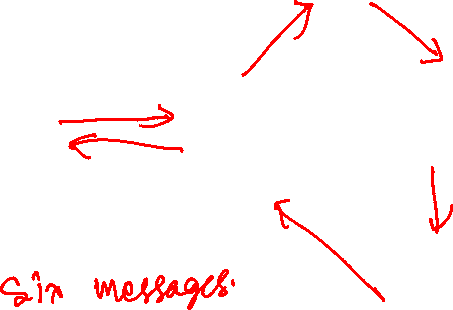 Six messages.